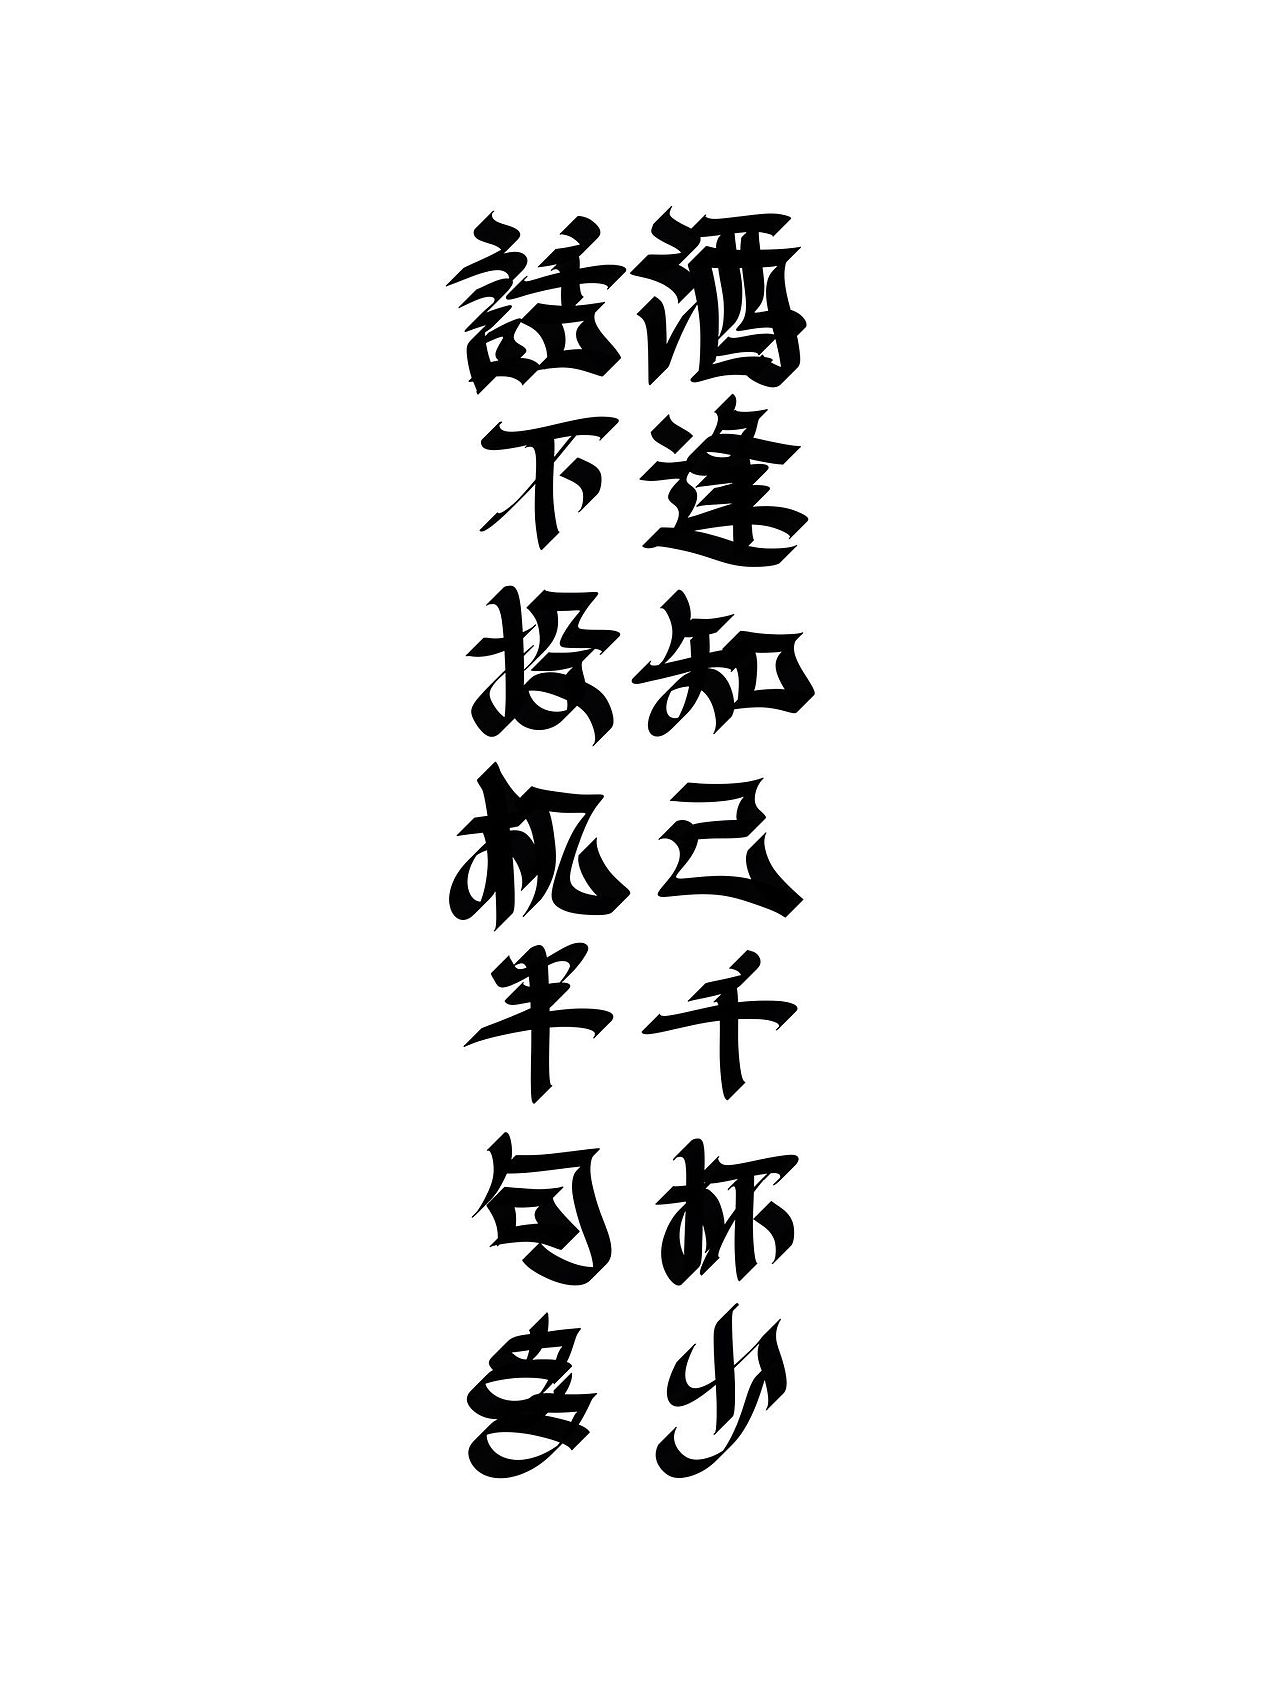 酒逢知己千杯少
話下投机半句多